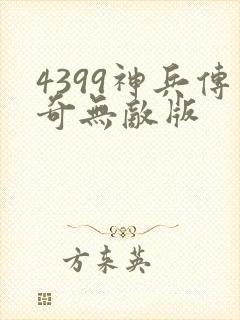 4399神兵傳
奇無敵版
方东英